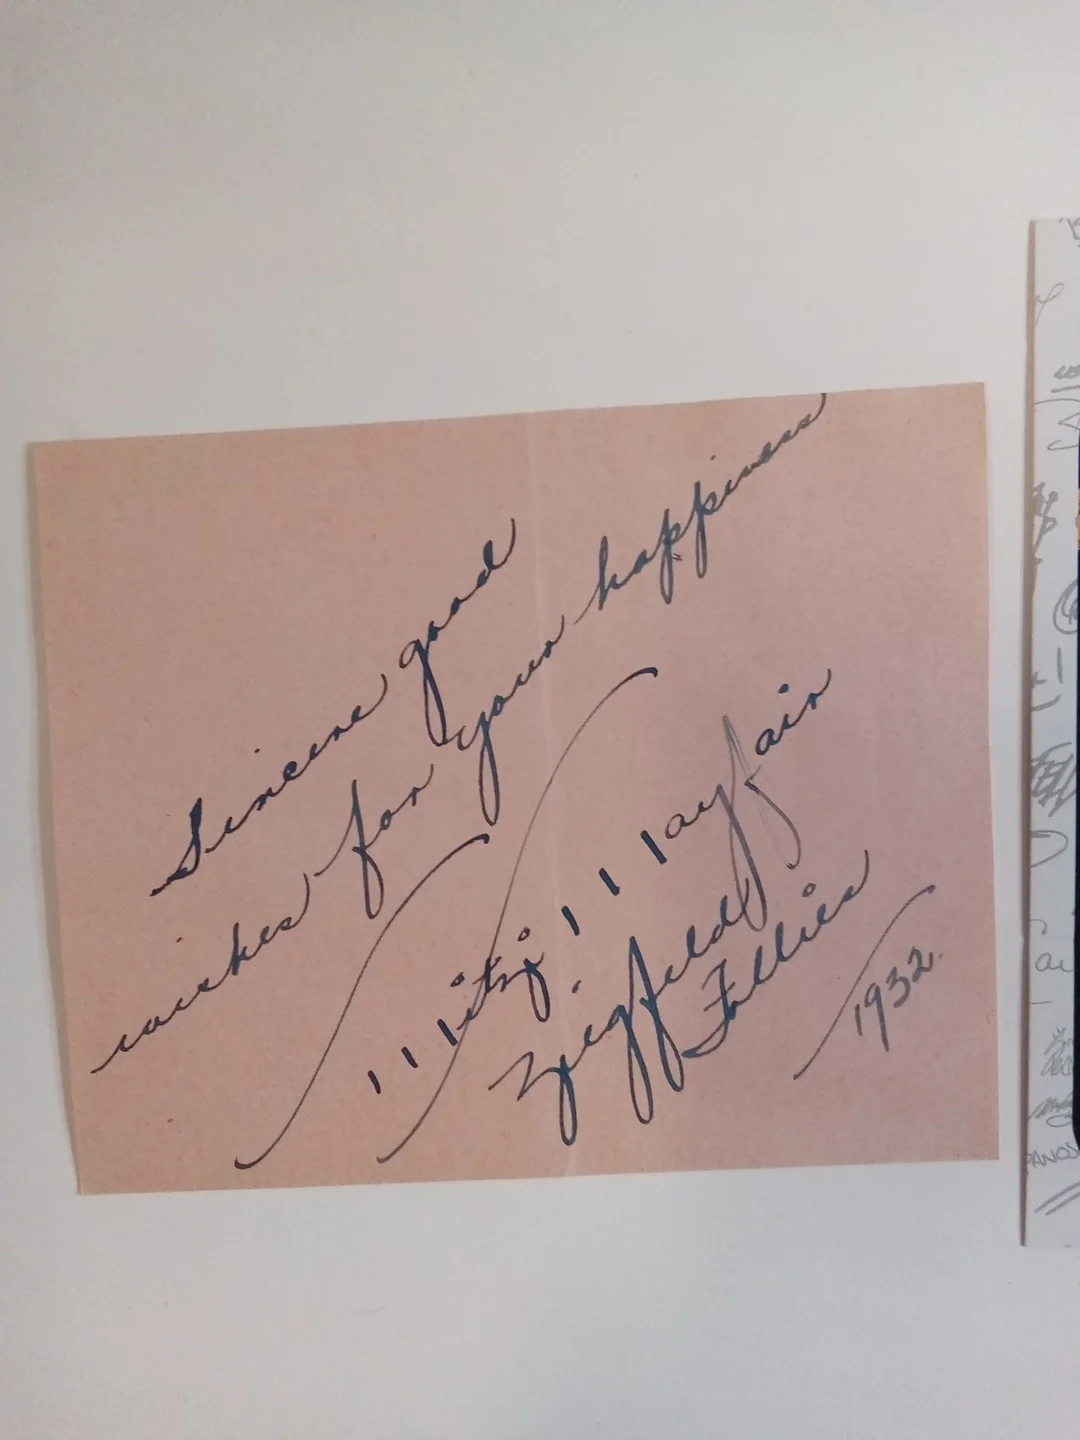 Sincere good
wishes for your happiness
Mitzi Mayfair
Ziegfeld
Follies
1932.
PANOS